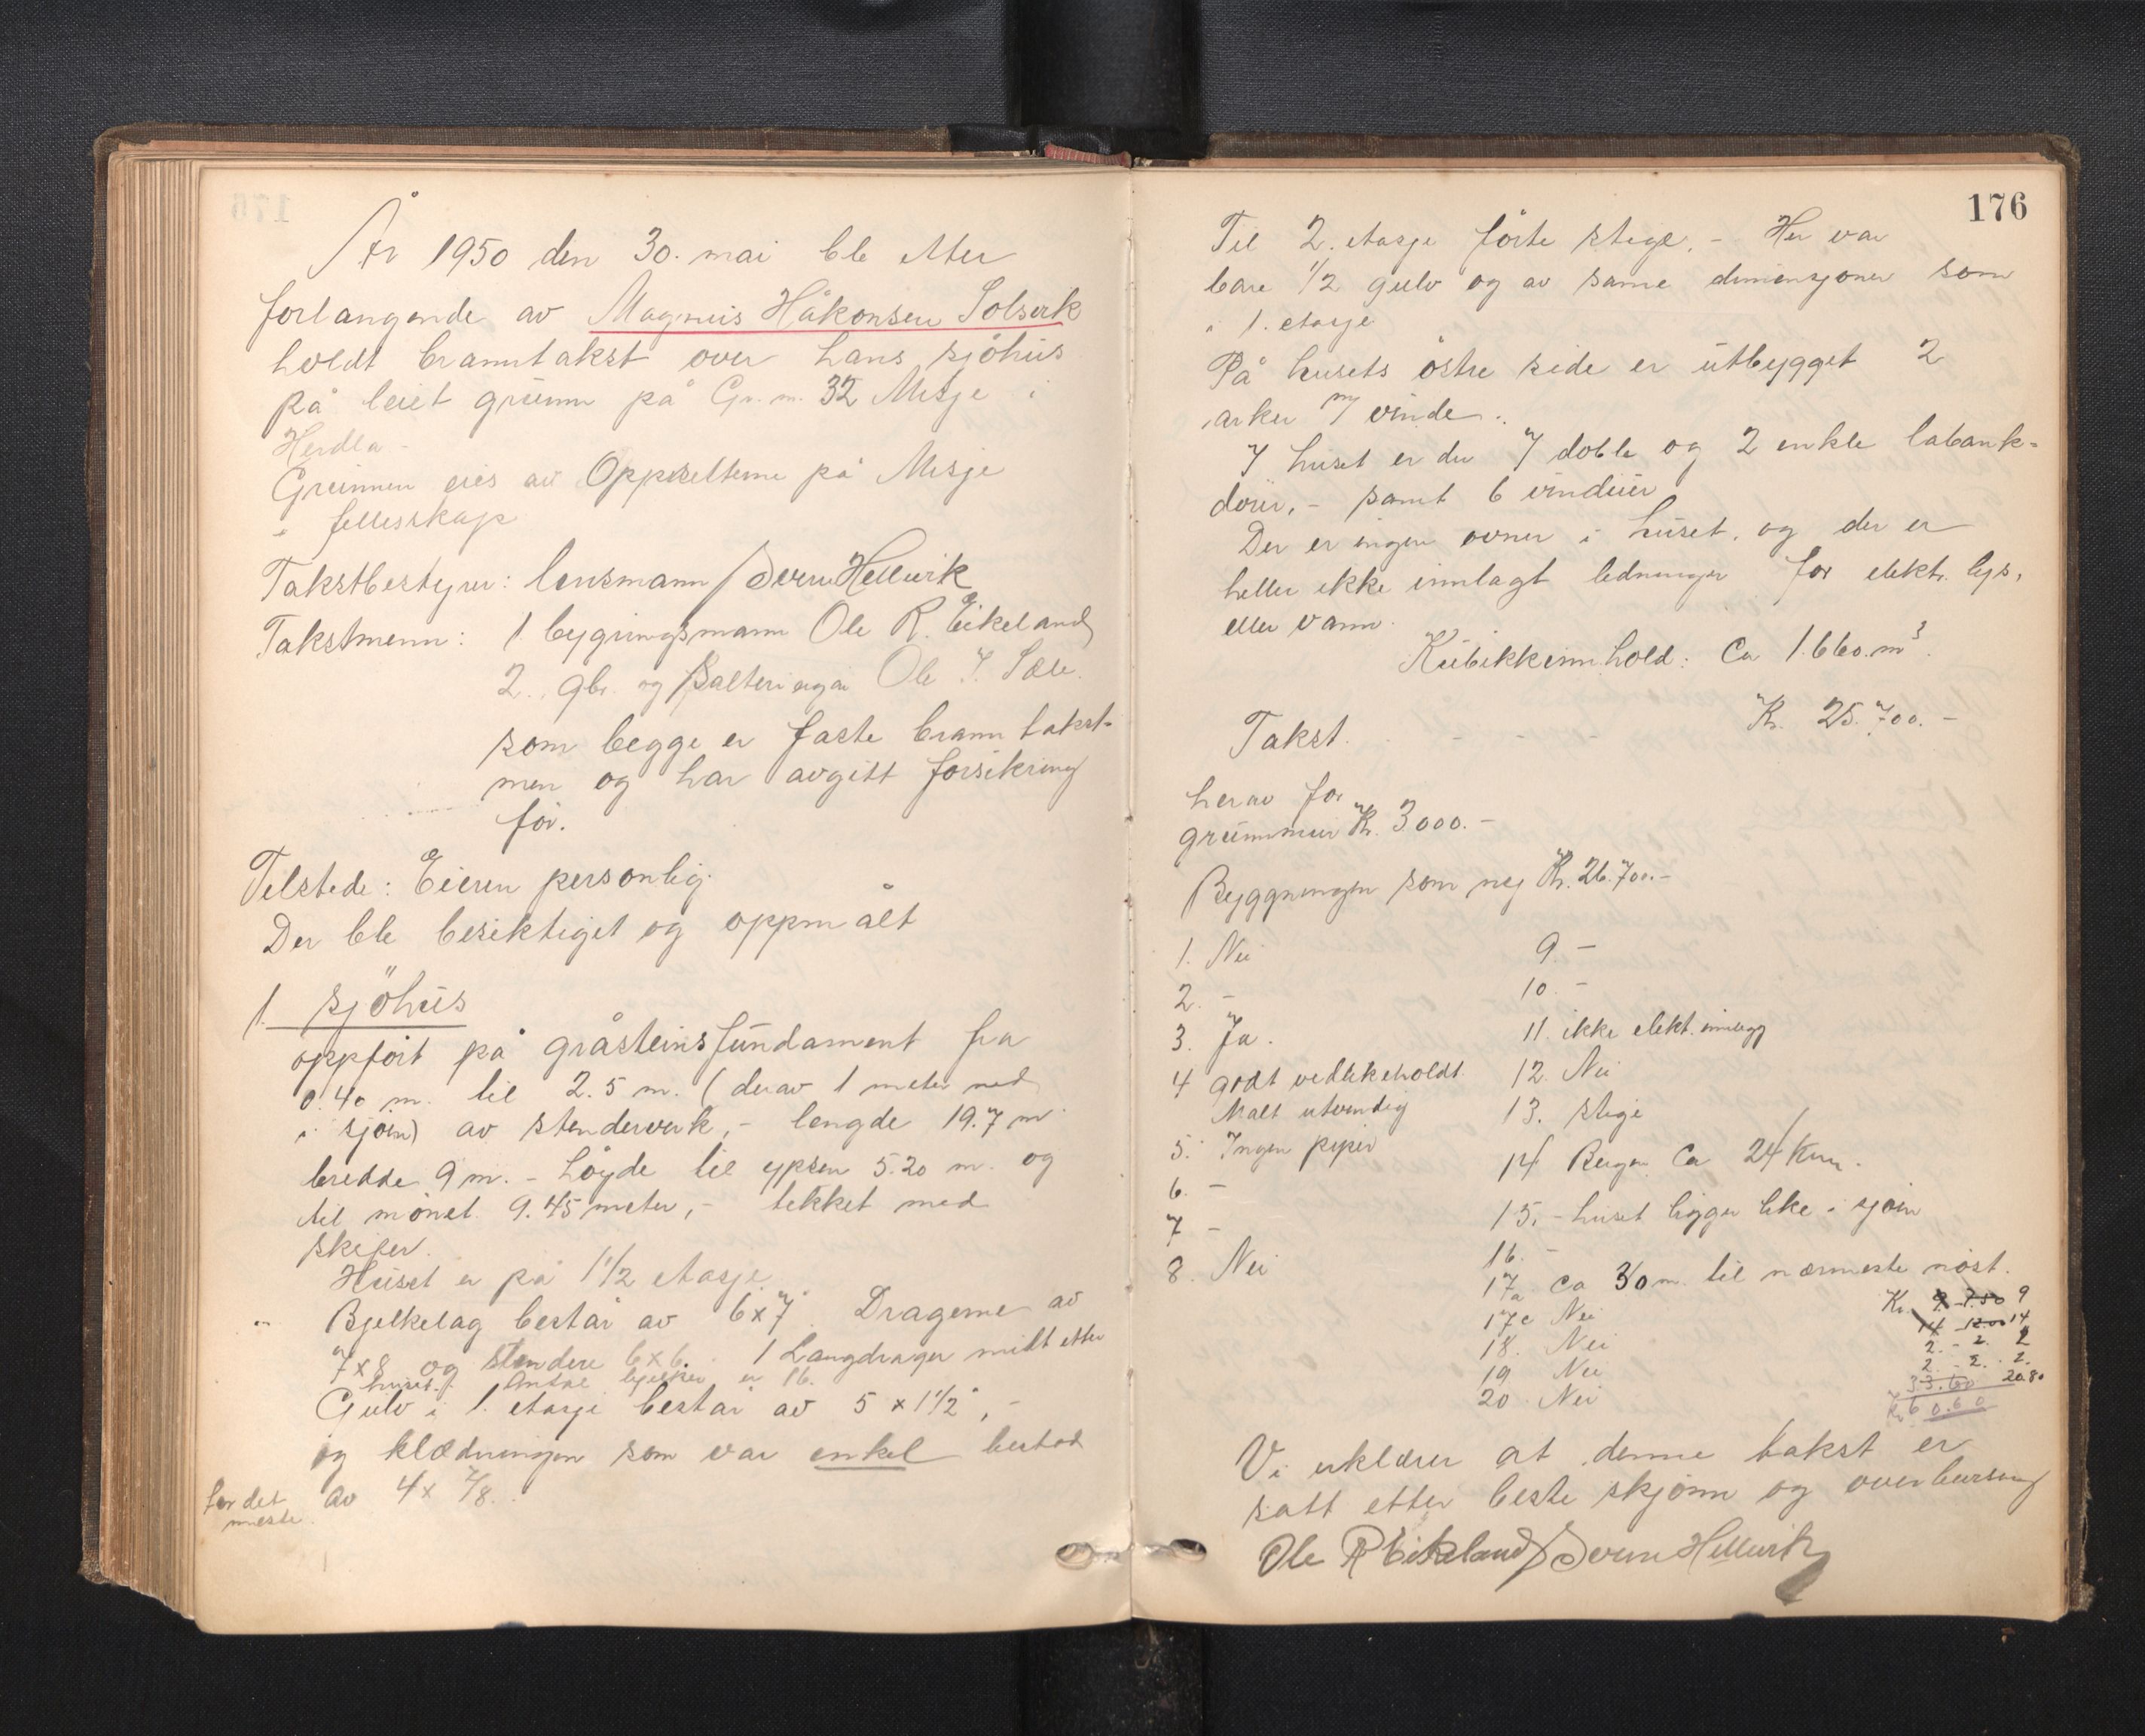 År 1950 den 30. mai ble etter
forlangende av Magnus Håkonsen Solsvik
holdt branntakst over hans sjøhus
på leiet grunn på Gr. nr. 32 Misje i
Herdla -
Grunnen eies av Oppsitterne på Misje
i fellesskap
Takstbestyrer: lensmann Sverre Hellevik
Takstmenn: 1. bygningsmann Ole R. Eikeland
2. gbr. og salterieier Ole J. Sæle.
som begge er faste branntakst-
men og har avgitt forsikring
før.
Tilstede: Eieren personlig.
Der ble besiktiget og oppmålt
1. sjöhus
oppført på gråsteinsfundament fra
0.40 m. til 2.5 m. (derav 1 meter ned
i sjøen) av stenderverk, - lengde 19.7 m.
bredde 9 m. - høyde til gesen 5.20 m. og
til mønet 9.45 meter, - tekket med
skifer.
Huset er på 1 1/2 etasje
Bjelkelag består av 6x7". Dragerne av
7x8 og stendere 6x6. 1 Langdrager midt etter
huset. Antal bjelker er 16.
Gulv i 1. etasje består av 5 x 1 1/2", -
og klædningen som var enkel bestod
for det meste av 4 x 7/8.
176
Til 2. etasje førte stege. - Her var
bare 1/2 gulv og av same dimensjoner som
i 1. etasje
På husets östre side er utbygget 2
arker m/ vinde.
I huset er der 7 doble og 2 enkle labank-
dører, - samt 6 vinduer
Der er ingen ovner i huset, og der er
heller ikke innlagt ledninger for elektr. lys,
eller vann.
Kubikkinnhold: Ca 1.660. m³.
Takst. - - - - Kr. 25.700. -
herav for
grunnmur Kr. 3000. -
Byggningen som ny Kr. 26.700. -
1. Nei
2. -
3. Ja.
4 godt vedlikeholdt
Malt utvendig
5. Ingen piper
6. -
7 -
8. Nei
9. -
10. -
11. ikke elekt. innlegg
12. Nei
13. stige
14 Bergen Ca 24 Km.
15. - huset ligger like i sjøen
16. -
17a ca 30 m. til nærmeste nøst.
17c Nei
18. Nei
19 Nei
20. Nei
Kr. 9. 7.50 9
14 12.00 14
2. - 2. 2
2. - 2. 2.
33.60 20.80
Kr 60.60
Vi erklærer at denne takst er
satt etter beste skjønn og overbevisning
Ole R Eikeland Sverre Hellevik